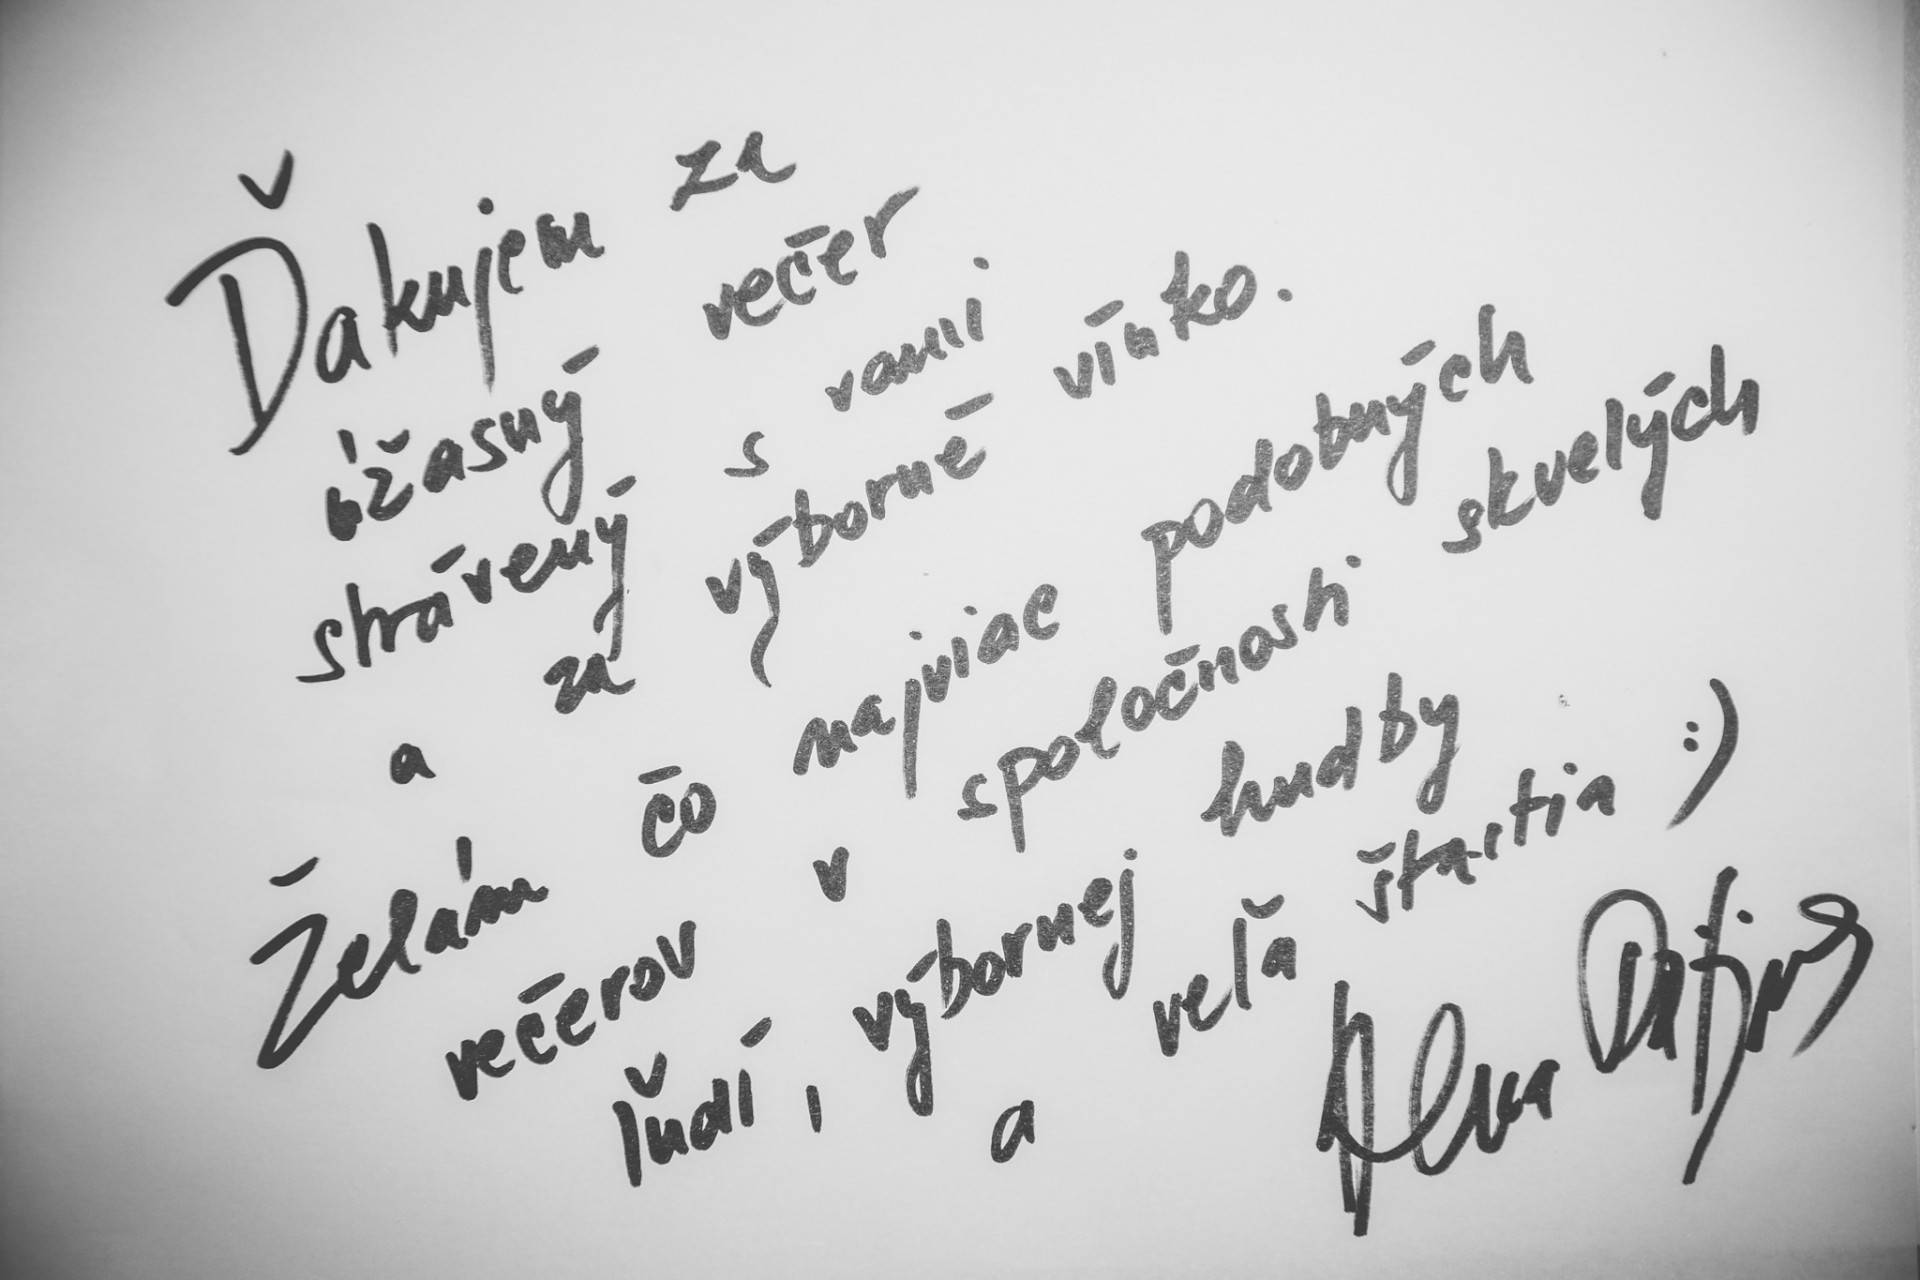 Ďakujem za
úžasný večer
strávený s vami
a za výborné vínko.
Želám čo najviac podobných
večerov v spoločnosti skvelých
ľudí, výbornej hudby
a veľa šťastia :)